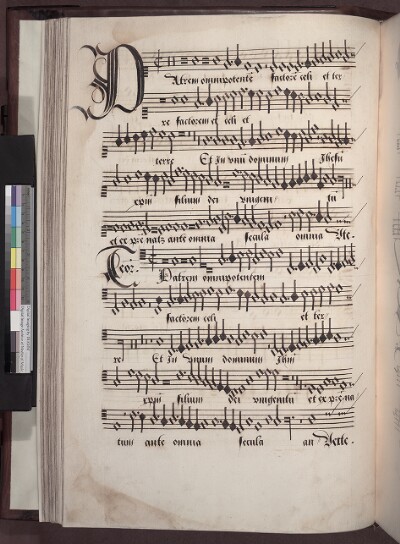 Patrem omnipotentē factorē celi et ter
re factorem et celi et
terre Et In vnū dominum Jhesū
cpm filium dei vnigeni tū
et ex pre natū ante omnia secula omnia Ve.
Teor. Patrem omnipotentem
factorem celi et ter
re Et In vnum dominum Jhm
cpm filium dei vnigenitū et ex pre na
tum ante omnia secula an Verte.